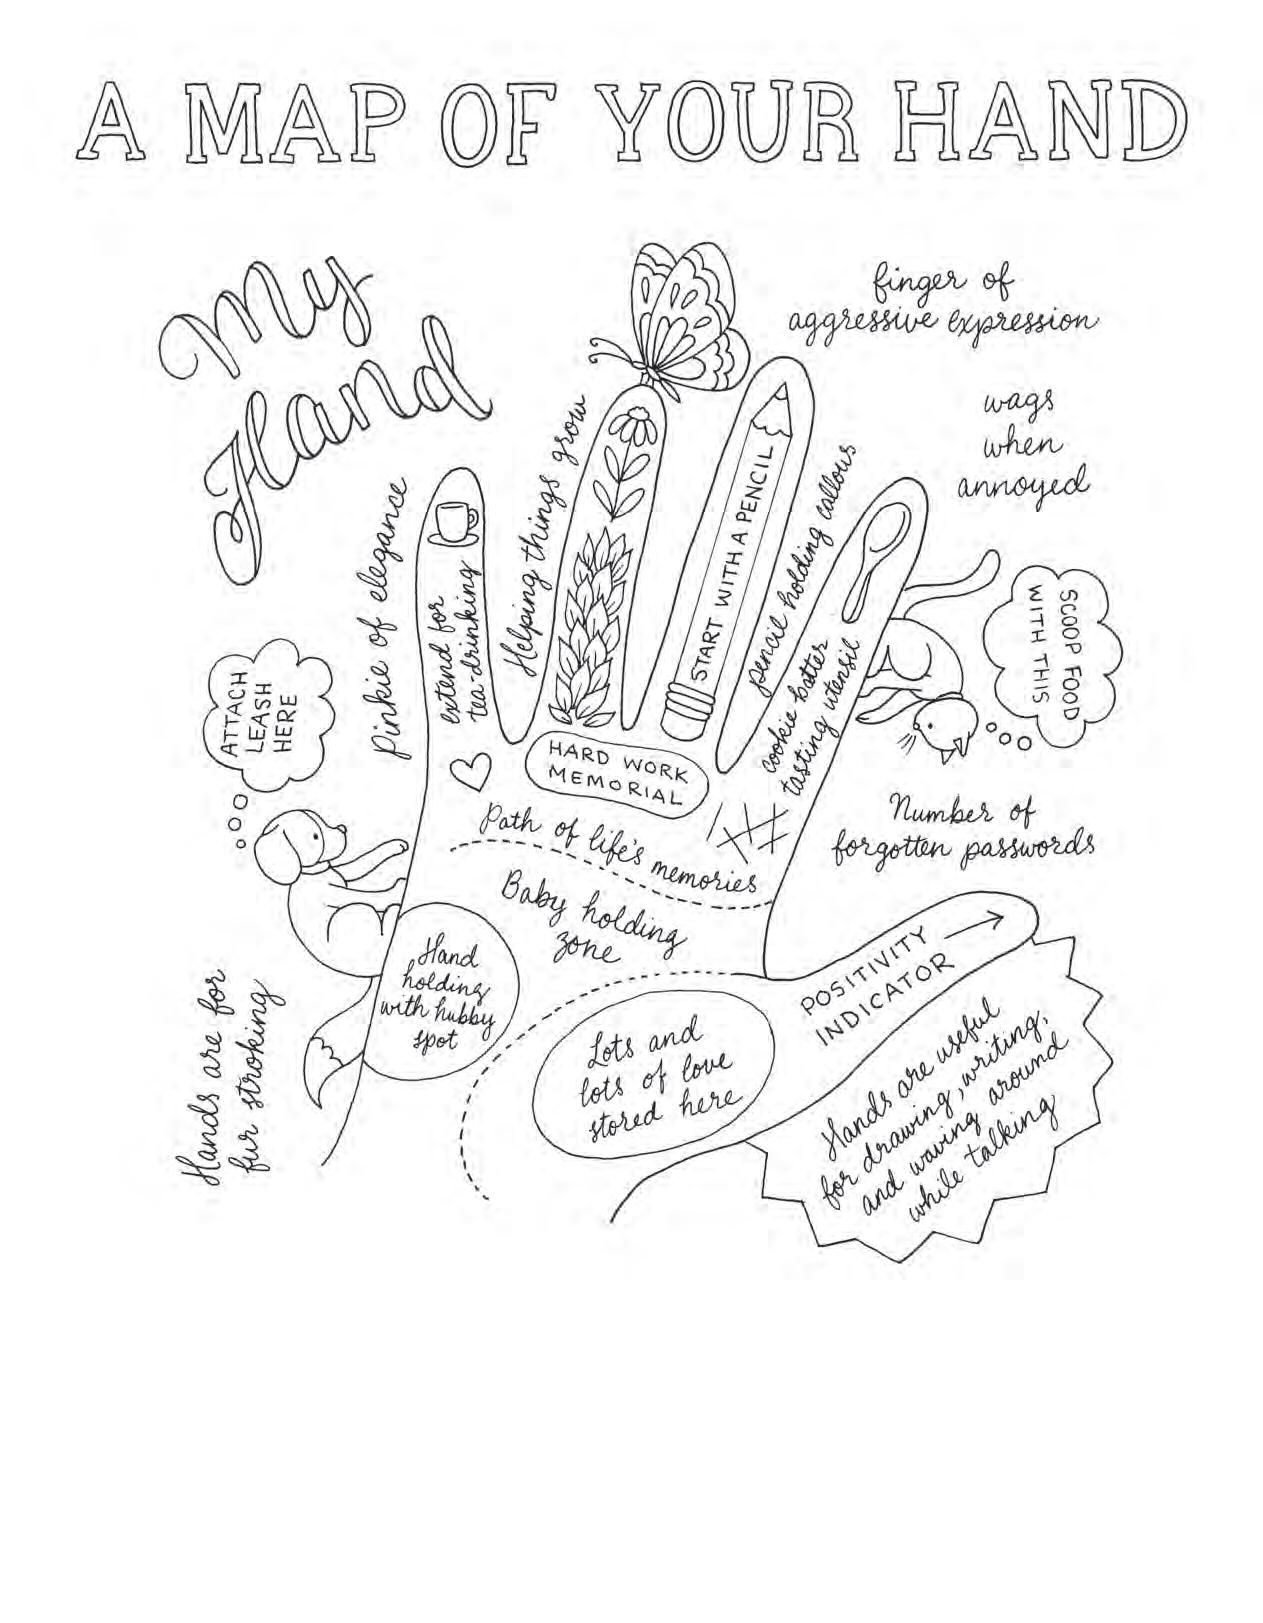 A MAP OF YOUR HAND
My
Hand
finger of
aggressive expression
wags
when
annoyed
Pinkie of elegance
extend for
tea-drinking
Helping things grow
START WITH A PENCIL
pencil holding callous
cookie batter
tasting utensil
SCOOP FOOD
WITH THIS
ATTACH
LEASH
HERE
HARD WORK
MEMORIAL
Path of life's memories
Number of
forgotten passwords
Baby holding
zone
Hand
holding
with hubby
spot
POSITIVITY
INDICATOR
Lots and
lots of love
stored here
Hands are for
fur stroking
Hands are useful
for drawing, writing,
and waving around
while talking